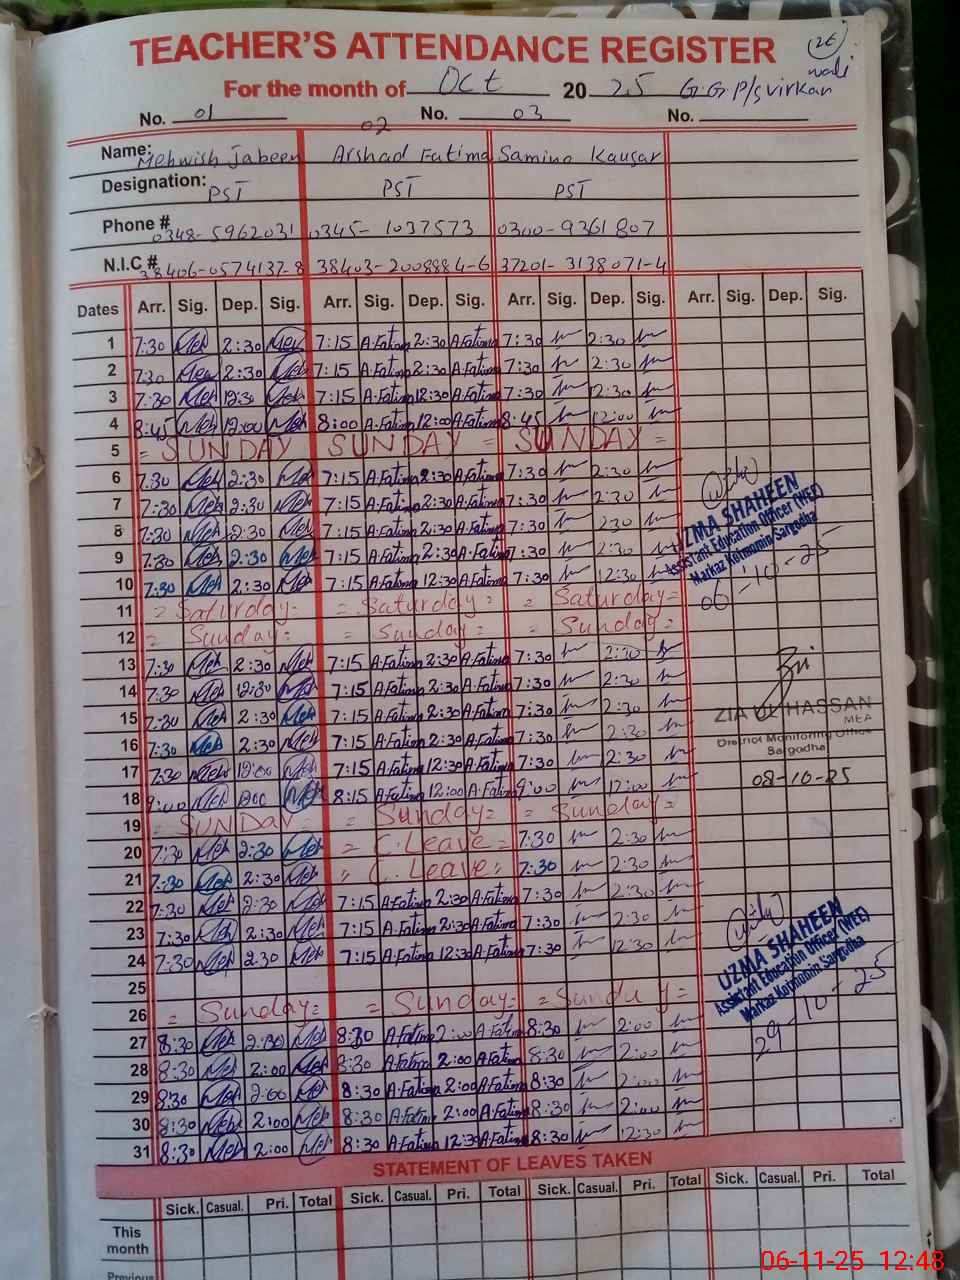 TEACHER'S ATTENDANCE REGISTER
(26) wali
For the month of Oct 20 25 G G P/s virkan
No. 01 02 No. 03 No.
Name: Mehwish Jabeen Arshad Fatima Samina Kausar
Designation: PST PST PST
Phone # 0348-5962031 0345-1037573 0300-9361807
N.I.C # 38406-0574137-8 38403-2008884-6 37201-3138071-4
Dates Arr. Sig. Dep. Sig. Arr. Sig. Dep. Sig. Arr. Sig. Dep. Sig. Arr. Sig. Dep. Sig.
1 7:30 Meh 2:30 Meh 7:15 A.Fatima 2:30 A.Fatima 7:30 2:30
2 7:30 Meh 2:30 Meh 7:15 A.Fatima 2:30 A.Fatima 7:30 2:30
3 7:30 Meh 12:30 Meh 7:15 A.Fatima 12:30 A.Fatima 7:30 12:30
4 8:45 Meh 12:00 Meh 8:00 A.Fatima 12:00 A.Fatima 8:45 12:00
5 = SUNDAY SUNDAY = SUNDAY =
6 7:30 Meh 2:30 Meh 7:15 A.Fatima 2:30 A.Fatima 7:30 2:30
7 7:30 Meh 2:30 Meh 7:15 A.Fatima 2:30 A.Fatima 7:30 2:30
8 7:30 Meh 2:30 Meh 7:15 A.Fatima 2:30 A.Fatima 7:30 2:30
9 7:30 Meh 2:30 Meh 7:15 A.Fatima 2:30 A.Fatima 7:30 2:30
10 7:30 Meh 2:30 Meh 7:15 A.Fatima 12:30 A.Fatima 7:30 12:30
UZMA SHAHEEN
Assistant Education Officer (WEE)
Markaz Kotmomin Sargodha
06-10-25
11 = Saturday = = Saturday = = Saturday =
12 = Sunday = = Sunday = = Sunday =
13 7:30 Meh 2:30 Meh 7:15 A.Fatima 2:30 A.Fatima 7:30 2:30
14 7:30 Meh 12:30 Meh 7:15 A.Fatima 2:30 A.Fatima 7:30 2:30
15 7:30 Meh 2:30 Meh 7:15 A.Fatima 2:30 A.Fatima 7:30 2:30
16 7:30 Meh 2:30 Meh 7:15 A.Fatima 2:30 A.Fatima 7:30 2:30
17 7:30 Meh 12:00 Meh 7:15 A.Fatima 12:30 A.Fatima 7:30 2:30
18 9:00 Meh Meh 8:15 A.Fatima 12:00 A.Fatima 9:00 12:00
ZIA UL HASSAN
MEA
District Monitoring Office
Sargodha
08-10-25
19 = SUNDAY = = Sunday = = Sunday =
20 7:30 Meh 2:30 Meh = C.Leave = 7:30 2:30
21 7:30 Meh 2:30 Meh = C.Leave = 7:30 2:30
22 7:30 Meh 2:30 Meh 7:15 A.Fatima 2:30 A.Fatima 7:30 2:30
23 7:30 Meh 2:30 Meh 7:15 A.Fatima 2:30 A.Fatima 7:30 2:30
24 7:30 Meh 2:30 Meh 7:15 A.Fatima 12:30 A.Fatima 7:30 12:30
25
26 = Sunday = = Sunday = = Sunday =
UZMA SHAHEEN
Assistant Education Officer (WEE)
Markaz Kotmomin Sargodha
29-10-25
27 8:30 Meh 2:30 Meh 8:30 A.Fatima 2:00 A.Fatima 8:30 2:00
28 8:30 Meh 2:00 Meh 8:30 A.Fatima 2:00 A.Fatima 8:30 2:00
29 8:30 Meh 2:00 Meh 8:30 A.Fatima 2:00 A.Fatima 8:30 2:00
30 8:30 Meh 2:00 Meh 8:30 A.Fatima 2:00 A.Fatima 8:30 2:00
31 8:30 Meh 2:00 Meh 8:30 A.Fatima 12:30 A.Fatima 8:30 12:30
STATEMENT OF LEAVES TAKEN
Sick. Casual. Pri. Total Sick. Casual. Pri. Total Sick. Casual. Pri. Total Sick. Casual. Pri. Total
This month
Previous
06-11-25 12:48